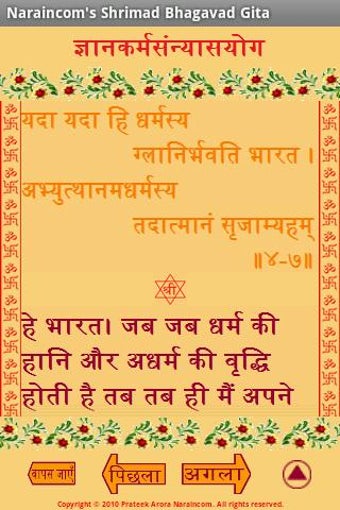 Naraincom's Shrimad Bhagavad Gita
ज्ञानकर्मसंन्यासयोग
यदा यदा हि धर्मस्य
ग्लानिर्भवति भारत ।
अभ्युत्थानमधर्मस्य
तदात्मानं सृजाम्यहम्
॥४-७॥
श्री
हे भारत। जब जब धर्म की
हानि और अधर्म की वृद्धि
होती है तब तब ही मैं अपने
वापस जाएँ पिछला अगला
Copyright © 2010 Prateek Arora Naraincom. All rights reserved.